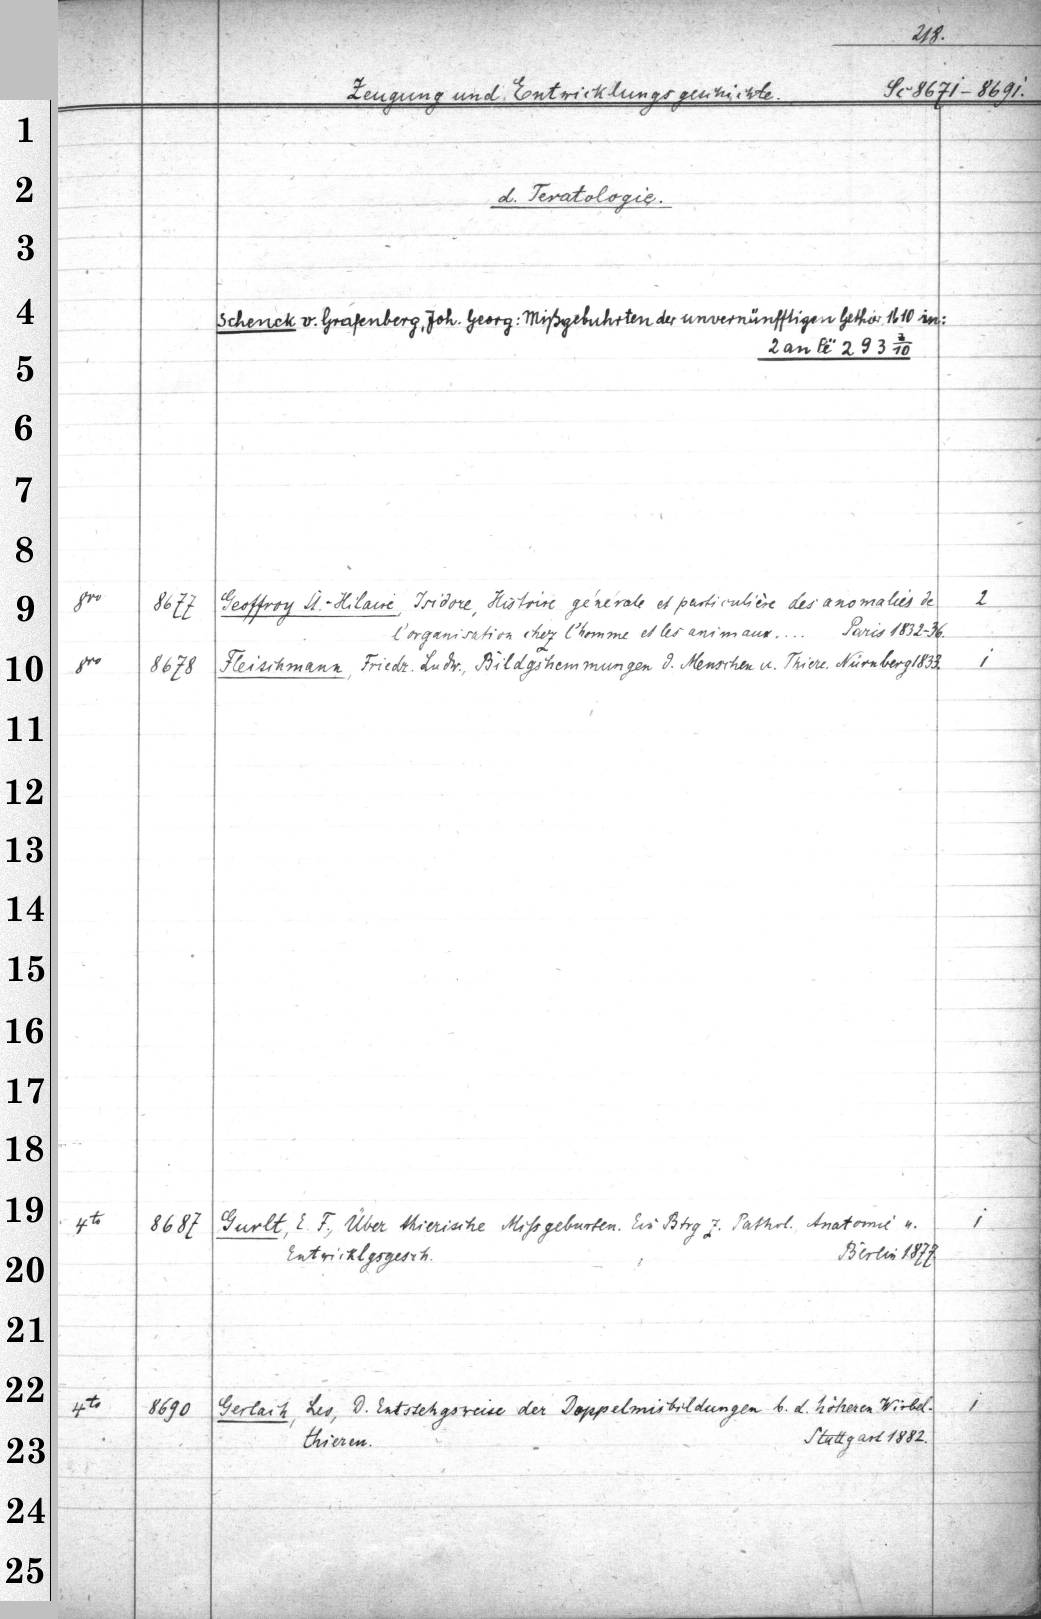 218.
Zeugung und Entwicklungsgeschichte. Sc 8671 – 8691.
1
2 d. Teratologie.
3
4 Schenck v. Grafenberg, Joh. Georg: Mißgebuhrten der unvernünfftigen 1610 in:
2 an 293
5
6
7
8
9 8vo 8677 Geoffroy St.-Hilaire, Isidore, Histoire générale et particulière des anomalies de 2
l'organisation chez l'homme et les animaux.... Paris 1832-36.
10 8vo 8678 Fleischmann, Friedr. Ludw., Bildgshemmungen d. Menschen u. Thiere. Nürnberg 1833. 1
11
12
13
14
15
16
17
18
19 4to 8687 Gurlt, E. F., Über thierische Missgeburten. Ein Btrg z. Pathol. Anatomie u. 1
20 Entwicklgsgesch. Berlin 1877
21
22 4to 8690 Gerlach, Leo, D. Entstehgsweise der Doppelmisbildungen b. d. höheren Wirbel- 1
23 thieren. Stuttgart 1882.
24
25